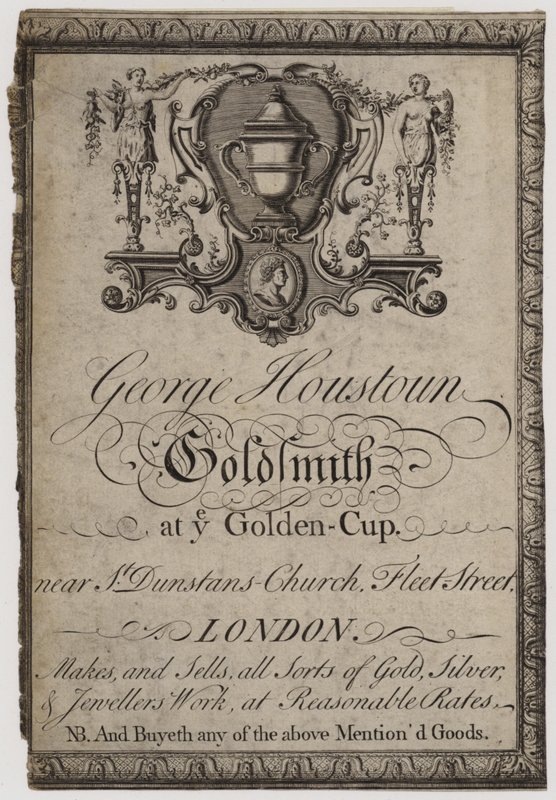 George Houstoun
Goldſmith
at yͤ Golden-Cup.
near St. Dunstans-Church, Fleet-Street,
LONDON.
Makes, and Sells, all Sorts of Gold, Silver,
& Jewellers Work, at Reasonable Rates.
NB. And Buyeth any of the above Mention'd Goods.